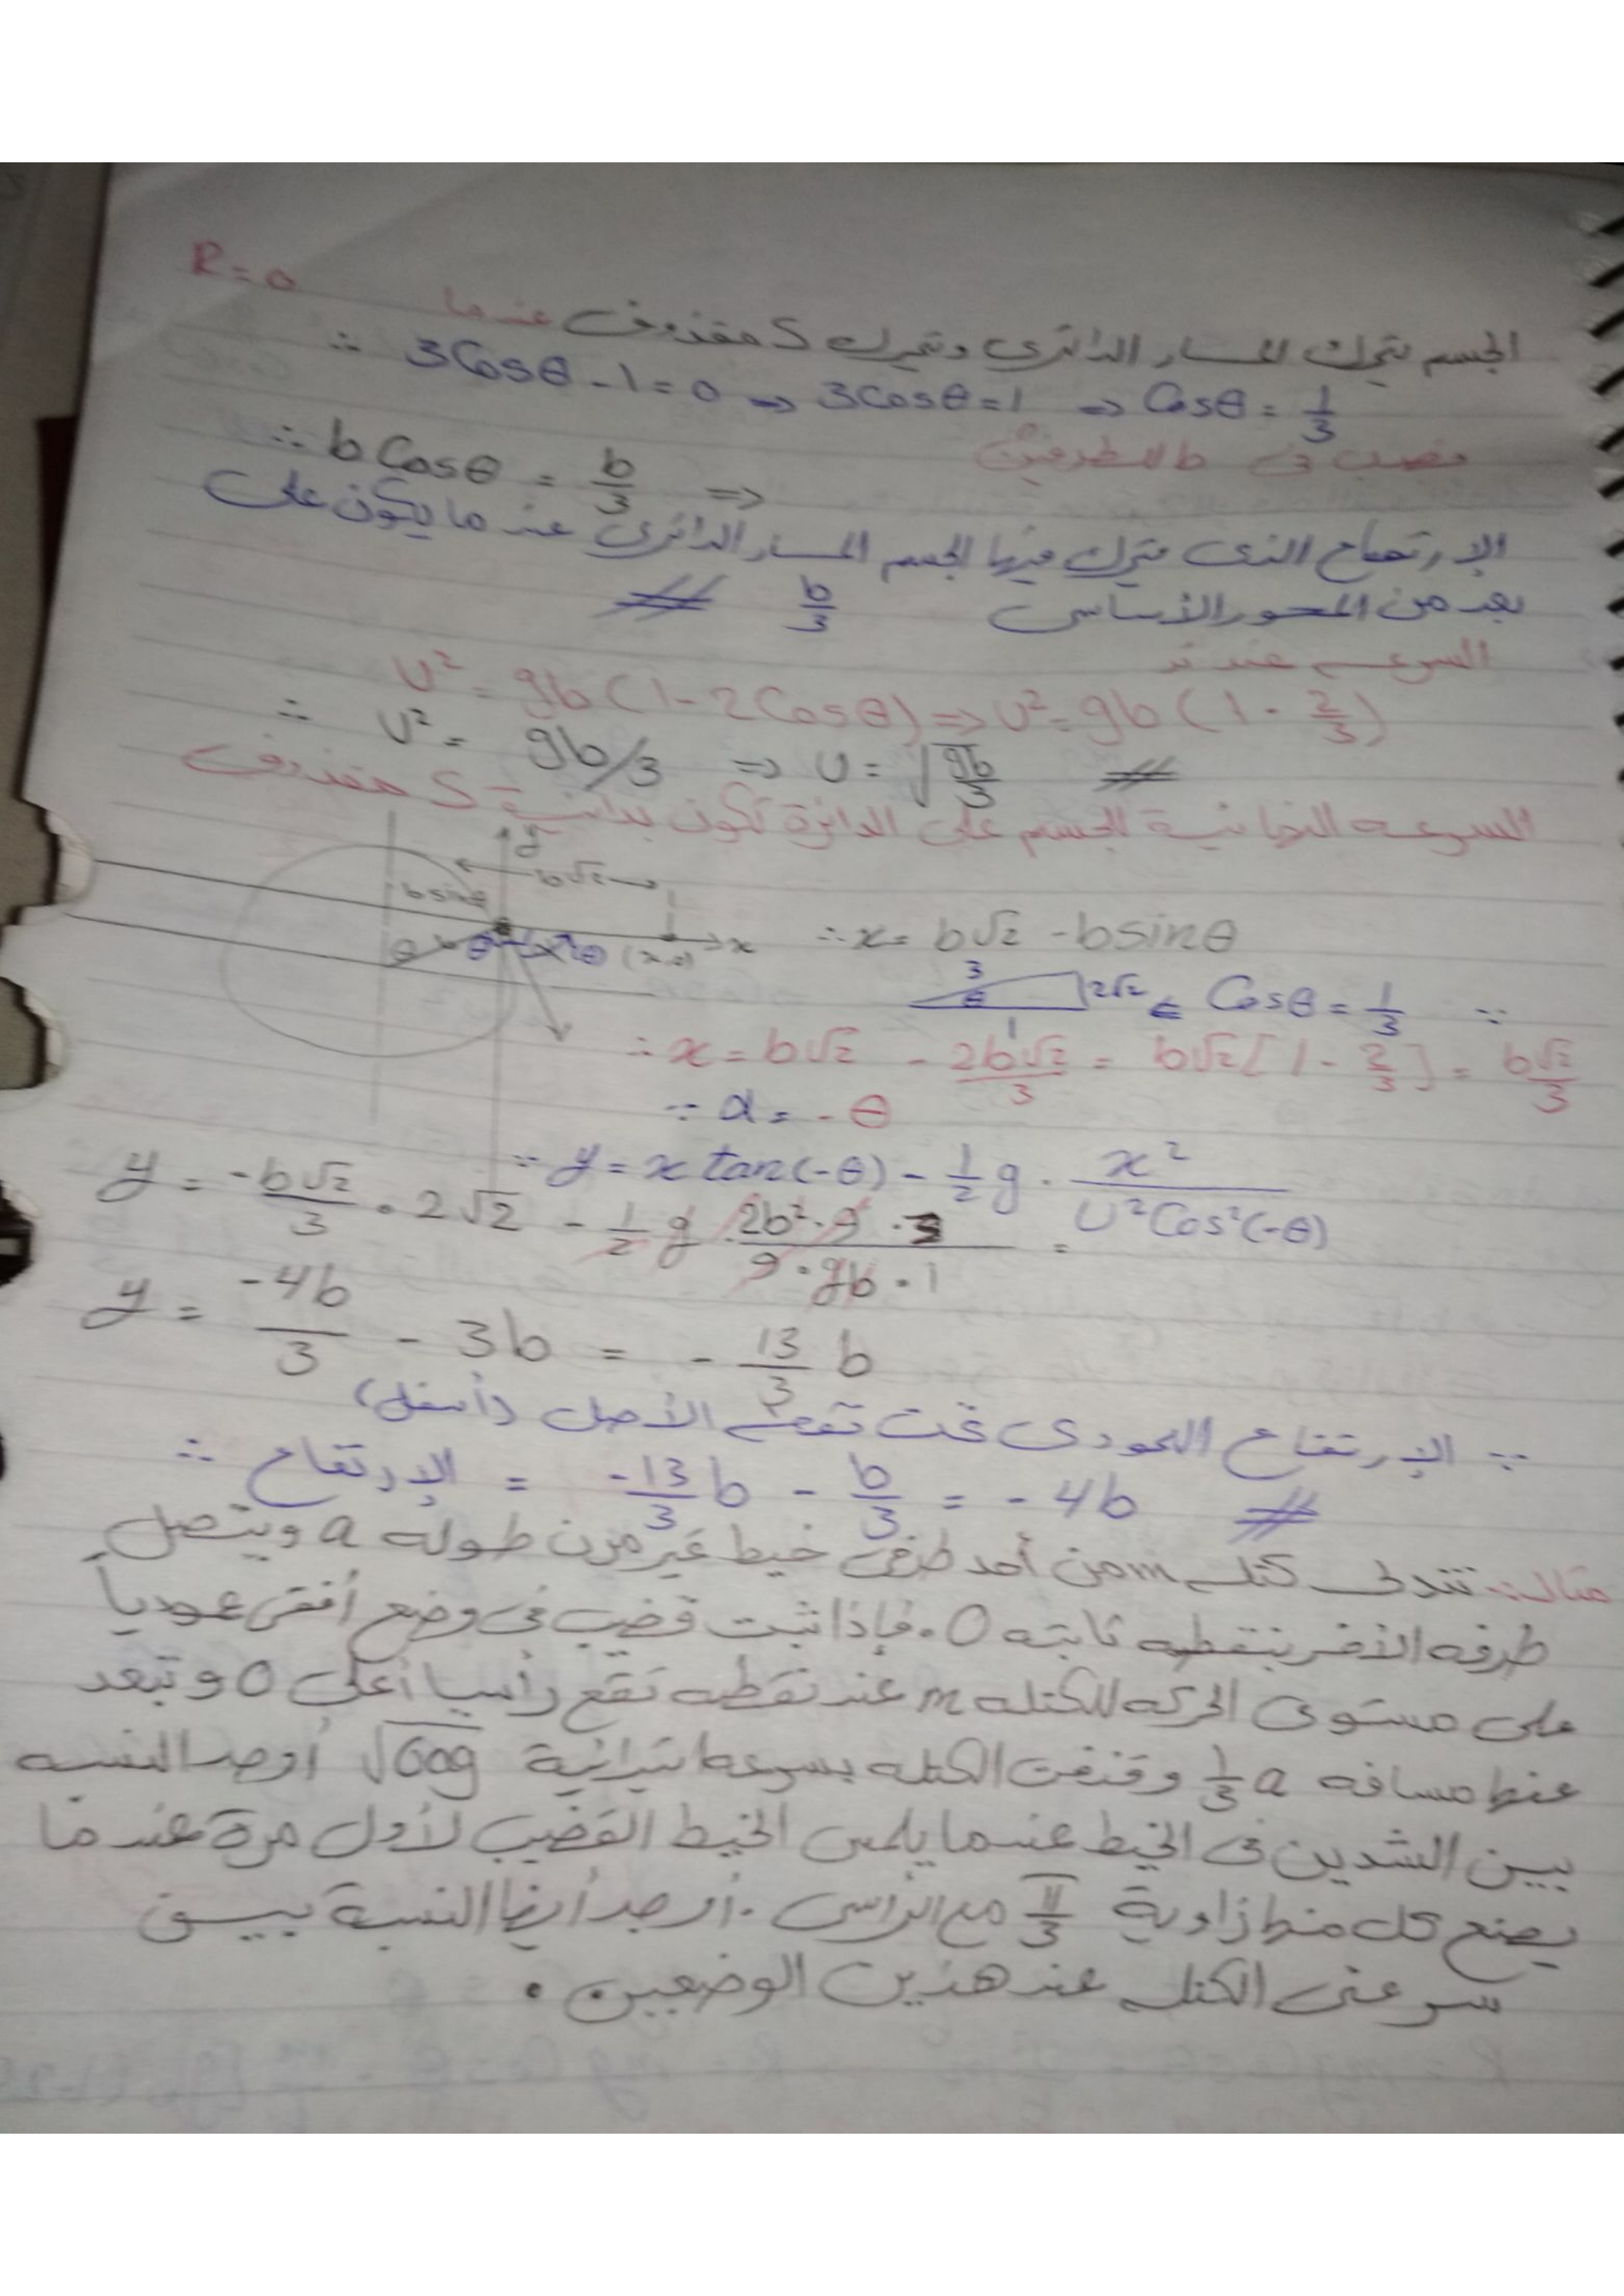 الجسم يترك المسار الدائرى ويتحرك كمقذوف عندما R = 0
∴ 3Cosθ - 1 = 0 ⇒ 3Cosθ = 1 ⇒ Cosθ = 1/3
∴ b Cosθ = b/3 ⇒ بضرب فى b للطرفين
الإرتفاع الذى يترك فيها الجسم المسار الدائرى عند ما يكون على
بعد من المحور الأساسى b/3 #
السرعه عند
U² = gb(1 - 2Cosθ) ⇒ U² = gb(1 - 2/3)
∴ U² = gb/3 ⇒ U = √(gb/3) #
السرعه النهائية للجسم على الدائرة تكون بدائية كمقذوف
y
b√2
b sinθ
θ θ θ (x,0) x
∴ x = b√2 - b sinθ
3 θ 2√2 1 ⇐ Cosθ = 1/3 ∵
∴ x = b√2 - 2b√2/3 = b√2[1 - 2/3] = b√2/3
∵ α = -θ
∵ y = x tan(-θ) - 1/2 g · x²/(U²Cos²(-θ))
y = -b√2/3 · 2√2 - 1/2 g · (2b²·9·3)/(9·gb·1) =
y = -4b/3 - 3b = -13/3 b
∵ الإرتفاع العمودى تحت نقطه الأصل (أسفل)
∴ الإرتفاع = -13/3 b - b/3 = -4b #
مثال: تتدلى كتله m من أحد طرفى خيط غير مرن طوله a ويتصل
طرفه الأخر بنقطه ثابته O. فإذا ثبت قضيب فى وضع أفقى عودياً
على مستوى الحركه للكتله m عند نقطه تقع رأسيا أعلى O وتبعد
عنها مسافه 1/3 a وقذفت الكتله بسرعه ابتدائية √6ag أوجد النسبه
بين الشدين فى الخيط عندما يلمس الخيط القضيب لأول مرة عندما
يصنع كل منها زاوية π/3 مع الرأسى. أوجد أيضا النسبة بيـن
سرعتى الكتله عند هذين الوضعين.